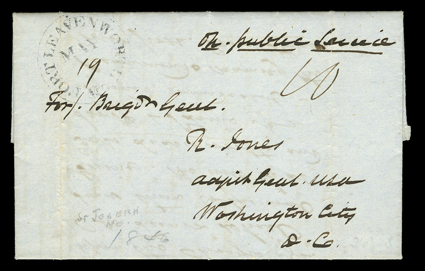 FORT LEAVENWORTH
MAY
19
On public Service
10
For Brigdr Genl.
R. Jones
Adjut Genl. USA
Washington City
D. Co.
St Joseph
1846